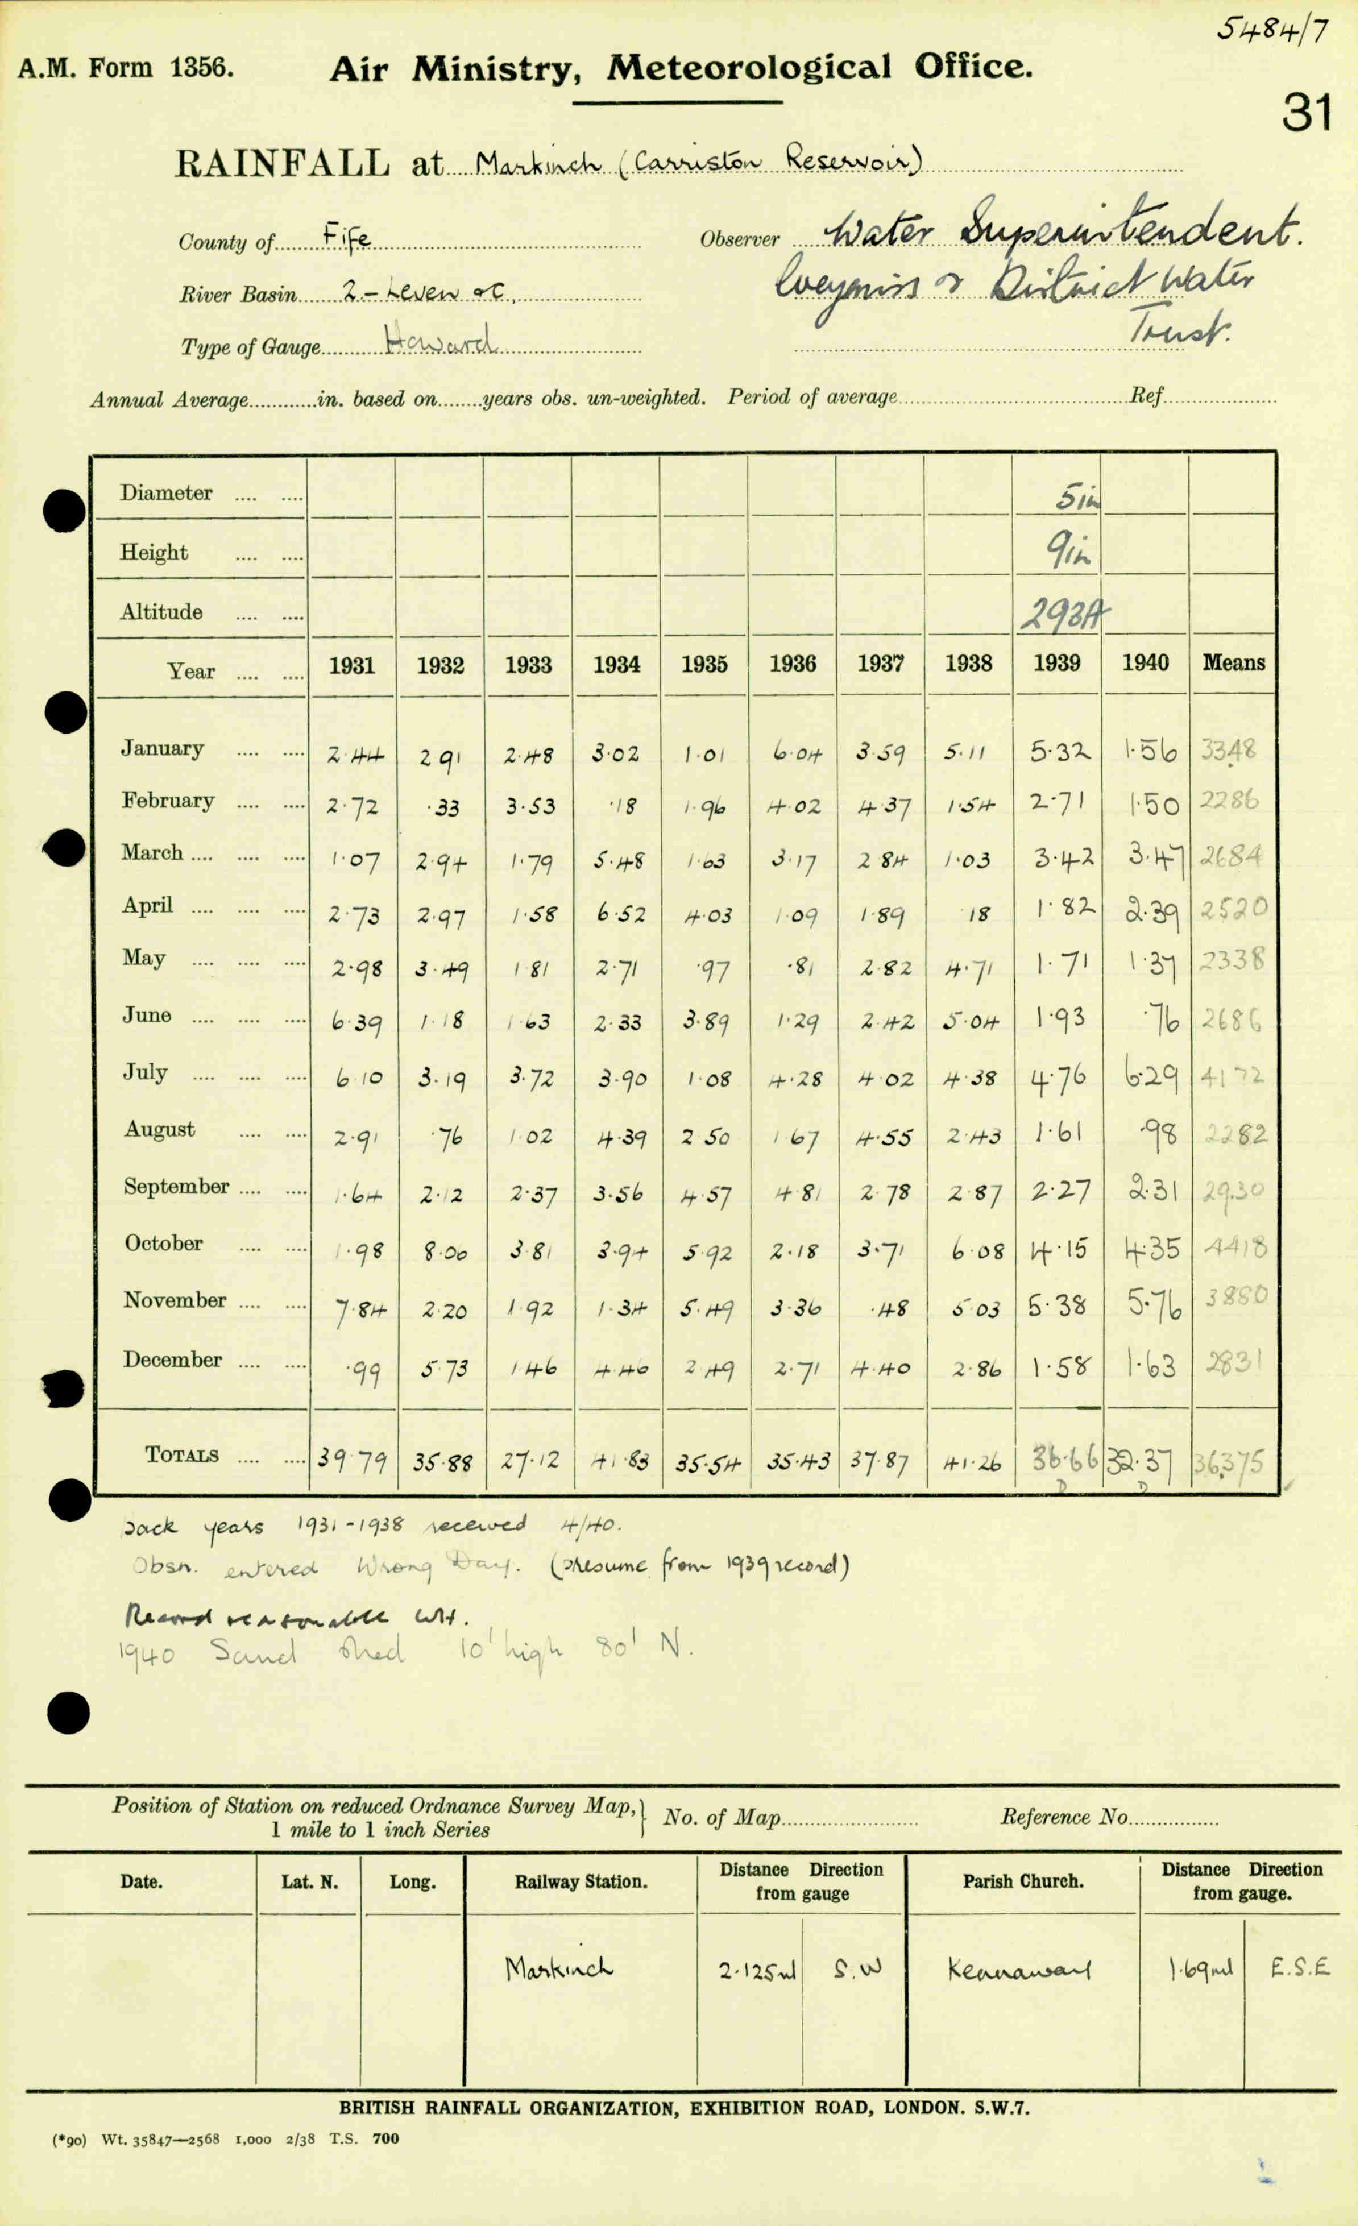 5484/7
A.M. Form 1356. Air Ministry, Meteorological Office.
31
RAINFALL at Markinch (Carriston Reservoir)
County of Fife Observer Water Superintendent.
River Basin 2 - Leven &c. Weymiss & District Water
Type of Gauge Howard Trust.
Annual Average in. based on years obs. un-weighted. Period of average Ref.
Diameter 5in
Height 9in
Altitude 293ft
Year 1931 1932 1933 1934 1935 1936 1937 1938 1939 1940 Means
January 2.44 2.91 2.48 3.02 1.01 6.04 3.59 5.11 5.32 1.56 3348
February 2.72 .33 3.53 .18 1.96 4.02 4.37 1.54 2.71 1.50 2286
March 1.07 2.94 1.79 5.48 1.63 3.17 2.84 1.03 3.42 3.47 2684
April 2.73 2.97 1.58 6.52 4.03 1.09 1.89 .18 1.82 2.39 2520
May 2.98 3.49 1.81 2.71 .97 .81 2.82 4.71 1.71 1.37 2338
June 6.39 1.18 1.63 2.33 3.89 1.29 2.42 5.04 1.93 .76 2686
July 6.10 3.19 3.72 3.90 1.08 4.28 4.02 4.38 4.76 6.29 4172
August 2.91 .76 1.02 4.39 2.50 1.67 4.55 2.43 1.61 .98 2282
September 1.64 2.12 2.37 3.56 4.57 4.81 2.78 2.87 2.27 2.31 2930
October 1.98 8.06 3.81 3.94 5.92 2.18 3.71 6.08 4.15 4.35 4418
November 7.84 2.20 1.92 1.34 5.49 3.36 .48 5.03 5.38 5.76 3880
December .99 5.73 1.46 4.46 2.49 2.71 4.40 2.86 1.58 1.63 2831
TOTALS 39.79 35.88 27.12 41.83 35.54 35.43 37.87 41.26 36.66 32.37 36.375
D D
Back years 1931-1938 received 4/40.
Obsn. entered Wrong Day. (presume from 1939 record)
Record reasonable
1940 Sand shed 10' high 80' N.
Position of Station on reduced Ordnance Survey Map, 1 mile to 1 inch Series No. of Map Reference No.
Date. Lat. N. Long. Railway Station. Distance Direction from gauge Parish Church. Distance Direction from gauge.
Markinch 2.125ml S.W Kennaway 1.69ml E.S.E
BRITISH RAINFALL ORGANIZATION, EXHIBITION ROAD, LONDON. S.W.7.
(*90) Wt. 35847—2568 1,000 2/38 T.S. 700